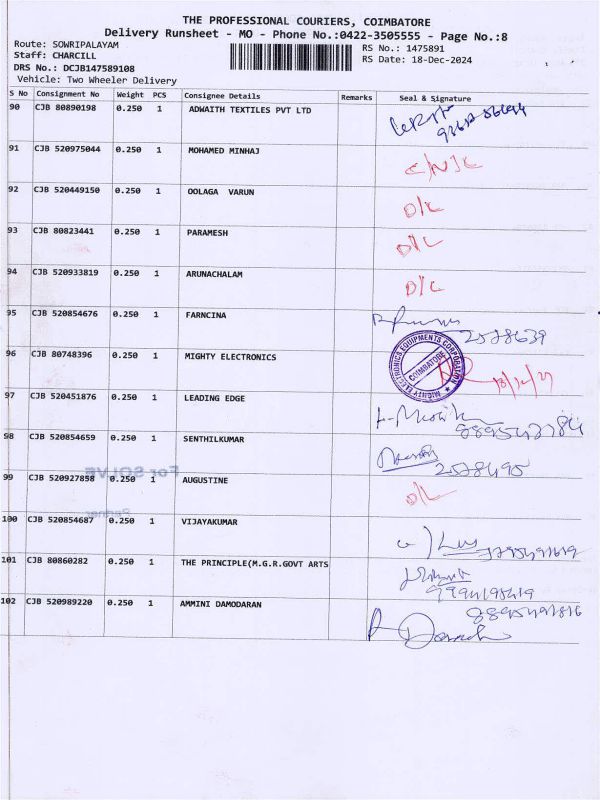 THE PROFESSIONAL COURIERS, COIMBATORE
Delivery Runsheet - MO - Phone No.:0422-3505555 - Page No.:8
Route: SOWRIPALAYAM
RS No.: 1475891
Staff: CHARCILL
RS Date: 18-Dec-2024
DRS No.: DCJB147589108
Vehicle: Two Wheeler Delivery
S No Consignment No Weight PCS Consignee Details Remarks Seal & Signature
90 CJB 80890198 0.250 1 ADWAITH TEXTILES PVT LTD
91 CJB 520975044 0.250 1 MOHAMED MINHAJ
92 CJB 520449150 0.250 1 OOLAGA VARUN D/L
93 CJB 80823441 0.250 1 PARAMESH D/L
94 CJB 520933819 0.250 1 ARUNACHALAM D/L
95 CJB 520854676 0.250 1 FARNCINA 2578639
96 CJB 80748396 0.250 1 MIGHTY ELECTRONICS MIGHTY ELECTRONICS EQUIPMENTS CORPORATION COIMBATORE
97 CJB 520451876 0.250 1 LEADING EDGE
98 CJB 520854659 0.250 1 SENTHILKUMAR 2578495
99 CJB 520927858 0.250 1 AUGUSTINE D/L
For SOLVE
Partner
100 CJB 520854687 0.250 1 VIJAYAKUMAR
101 CJB 80860282 0.250 1 THE PRINCIPLE(M.G.R.GOVT ARTS
102 CJB 520989220 0.250 1 AMMINI DAMODARAN